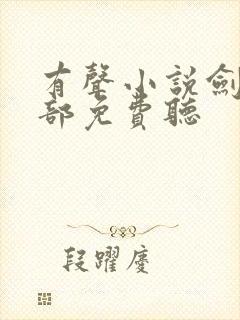 有聲小說劍
部免費聽
段躍慶